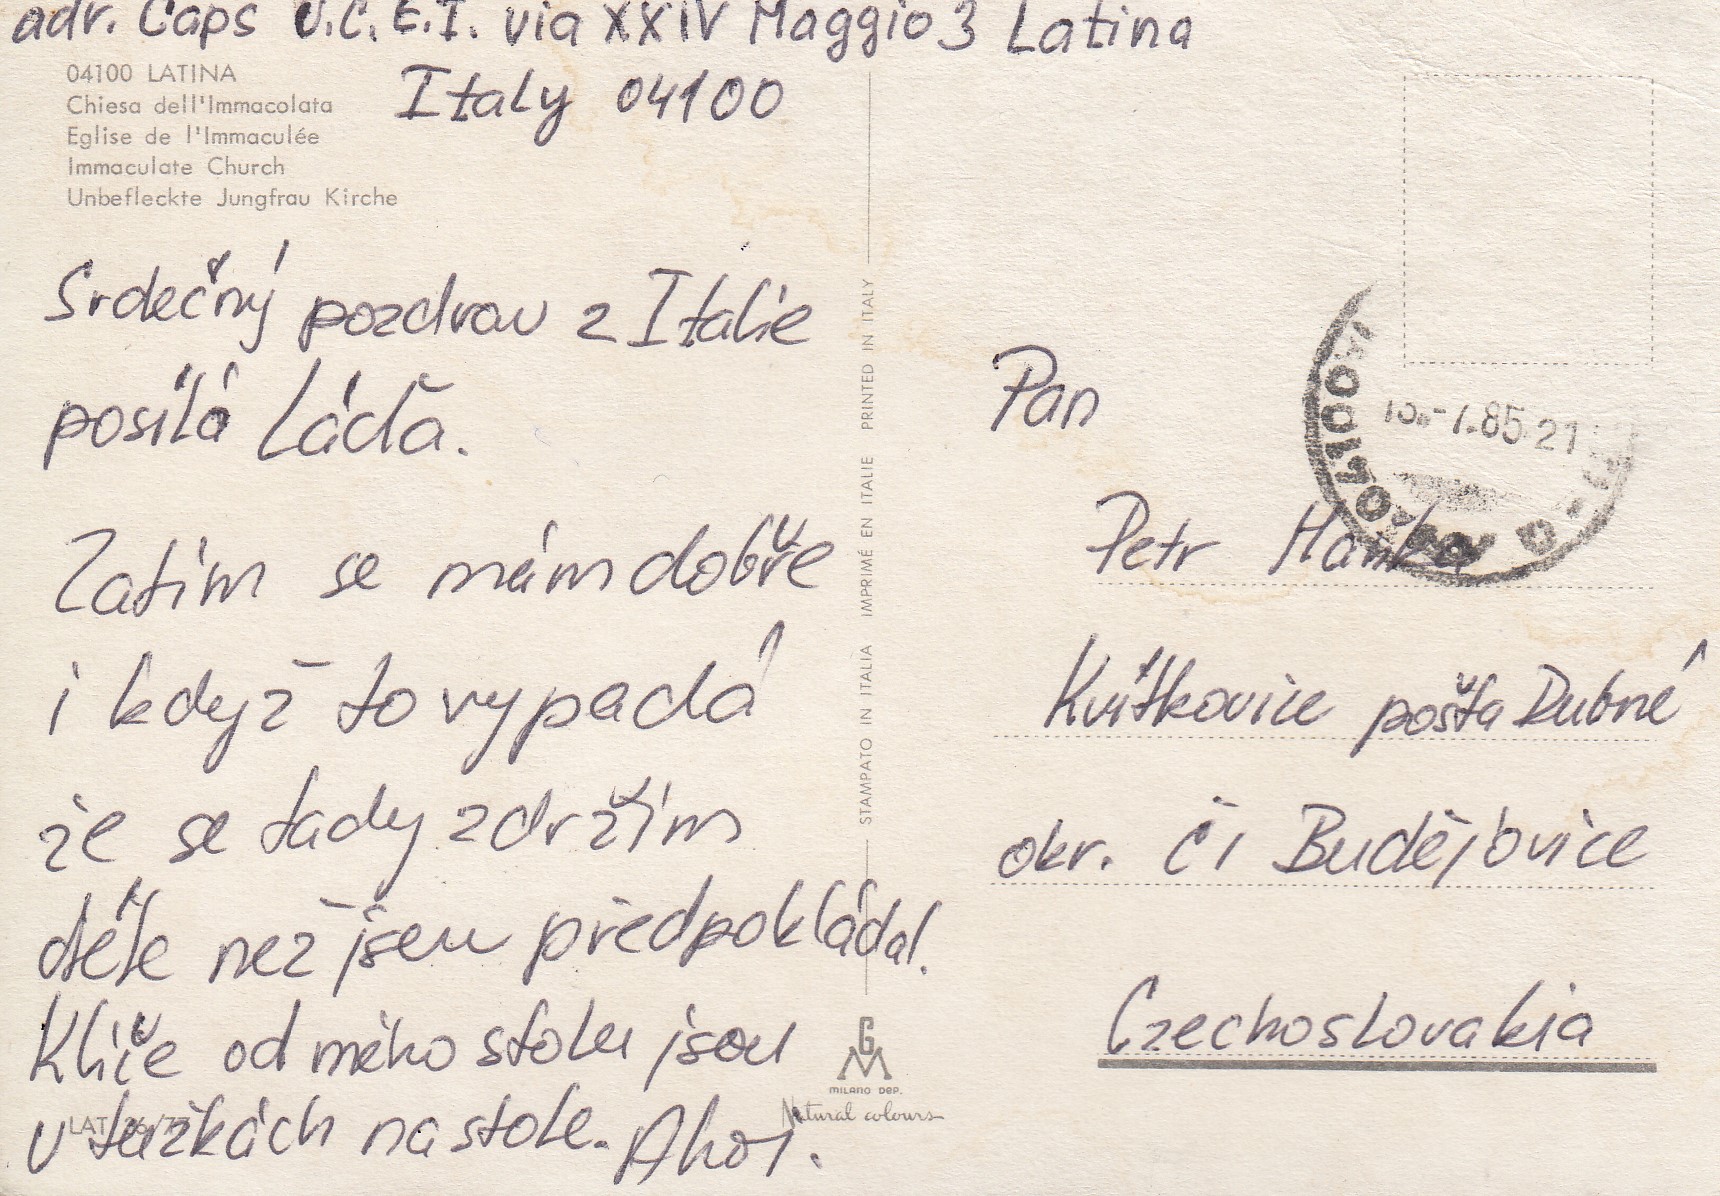 adr. Caps U.C.E.I. via XXIV Maggio 3 Latina
Italy 04100
04100 LATINA
Chiesa dell'Immacolata
Eglise de l'Immaculée
Immaculate Church
Unbefleckte Jungfrau Kirche
Srdečný pozdrav z Italie
posílá Láďa.
Zatím se mám dobře
i když to vypadá
že se tady zdržím
déle než jsem předpokládal.
Klíče od mého stolu jsou
v tužkách na stole. Ahoj.
LAT 36/77
STAMPATO IN ITALIA IMPRIMÉ EN ITALIE PRINTED IN ITALY
GM
MILANO DEP.
Natural colours
04100
-7.85.21
Pan
Petr
Kvítkovice pošta Dubné
okr. Č. Budějovice
Czechoslovakia